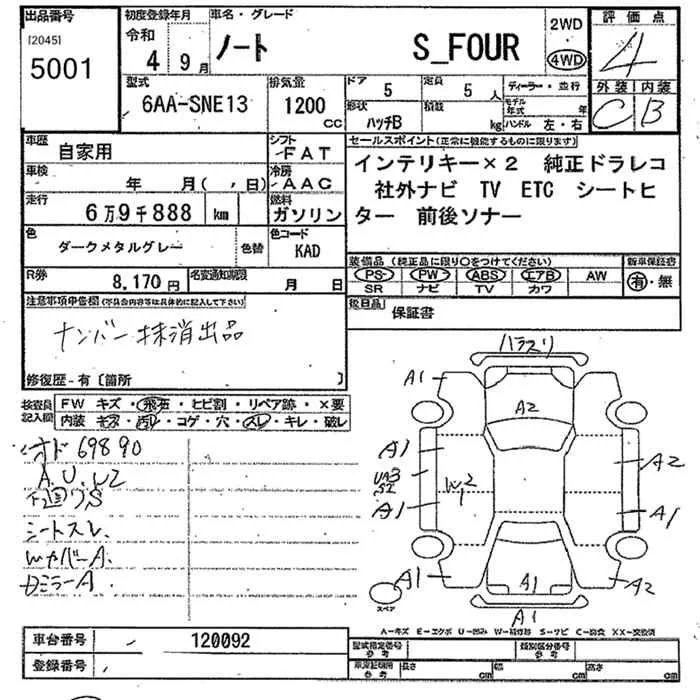 出品番号 初度登録年月 車名・グレード 2WD 評価点
[2045] 令和
5001 4年 9月 ノート S_FOUR 4WD 4
型式 排気量 ドア 定員 ディーラー・並行 外装 内装
6AA-SNE13 1200 cc 5 5人 モデル年式 年 C B
形状 積載
ハッチB kg ハンドル 左・右
車歴 自家用 シフト FAT セールスポイント(正常に機能するものに限ります)
車検 年 月( , 日) 冷房 AAC インテリキー×2 純正ドラレコ
走行 6万9千888 km 燃料 ガソリン 社外ナビ TV ETC シートヒ
ター 前後ソナー
色 ダークメタルグレー 色替 色コード KAD
装備品(純正品に限り〇をつけてください) 新車保証書
R券 8,170円 名変通知期限 月 日 PS PW ABS エアB AW 有・無
SR ナビ TV カワ
後日品 保証書
ナンバー抹消出品
修復歴-有〔箇所 〕
検査員記入欄 FW キズ・飛石・ヒビ割・リペア跡・×要
内装 キズ・汚レ・コゲ・穴・スレ・キレ・破レ
オド 69890
A.U.W2
下廻りS
シートスレ
WカバーA.
DミラーA
ハラスリ
A1
A2
A1
A2
W2
1
A1
A1
A1
A1
A2
A1
スペア
A-キズ E-エクボ U-凹み W-補修跡 S-サビ C-腐食 XX-交換済
車台番号 - 120092 型式指定番号 参考 類別区分番号 参考
登録番号 長さ cm 幅 cm 高さ cm